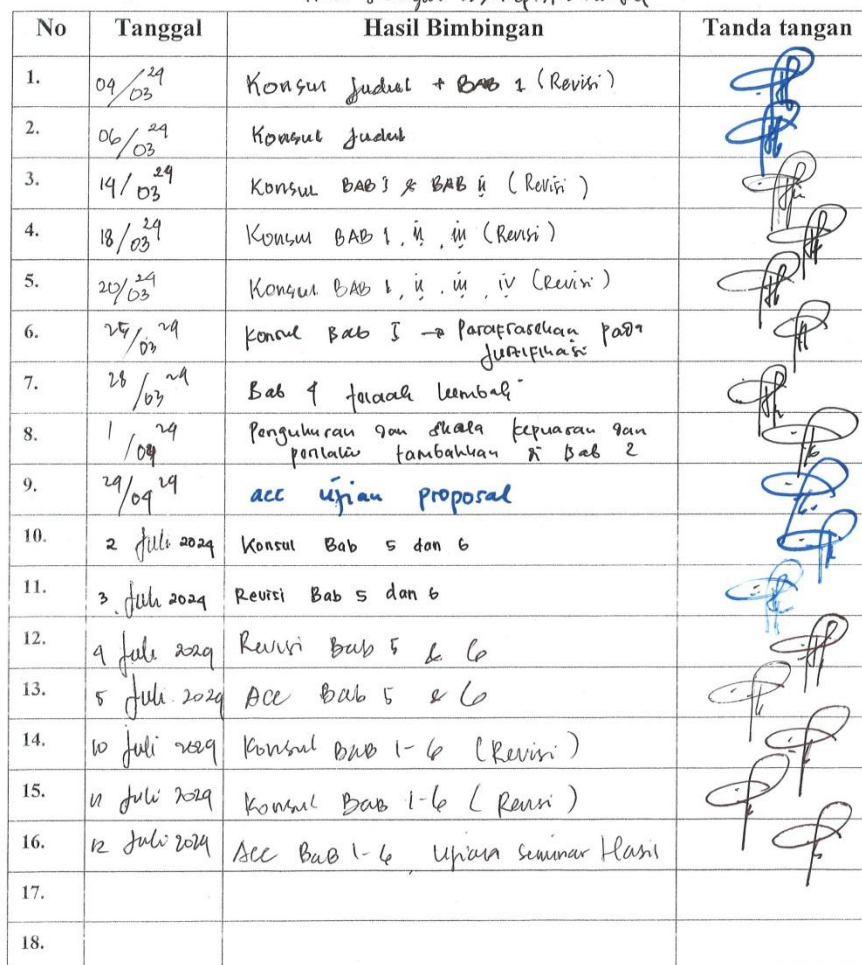 No Tanggal Hasil Bimbingan Tanda tangan
1. 04/03 24 Konsul Judul + BAB 1 (Revisi)
2. 06/03 24 Konsul Judul
3. 14/03 24 Konsul BAB I & BAB ii (Revisi)
4. 18/03 24 Konsul BAB 1, ii, iii (Revisi)
5. 20/03 24 Konsul BAB 1, ii, iii, iv (Revisi)
6. 25/03 24 Konsul Bab I → Parafrasekan pada
Justifikasi
7. 28/03 24 Bab 4 kembali
8. 1/04 24 Pengukuran dan skala kepuasan dan
tambahkan di Bab 2
9. 29/04 24 acc ujian proposal
10. 2 Juli 2024 Konsul Bab 5 dan 6
11. 3 Juli 2024 Revisi Bab 5 dan 6
12. 4 Juli 2024 Revisi Bab 5 & 6
13. 5 Juli 2024 Acc Bab 5 & 6
14. 10 Juli 2024 Konsul BAB 1-6 (Revisi)
15. 11 Juli 2024 Konsul BAB 1-6 (Revisi)
16. 12 Juli 2024 Acc BAB 1-6, Ujian Seminar Hasil
17.
18.